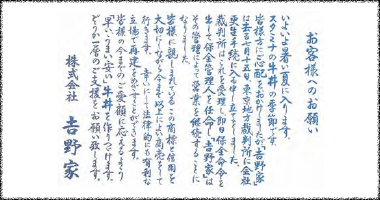 お客様へのお願い
いよいよ暑い夏に入ります。
スタミナの牛丼の季節です。
皆様方にご心配をおかけしましたが“吉野家”
は去る七月十五日、東京地方裁判所に会社
更生手続に入る申し立てをしました。
裁判所はこれを受理し即日保全命令を
出して保全管理人を任命し“吉野家”は
その管理によって営業を継続することに
なりました。
皆様に親しまれているこの商標と信用を
大切にしながら今まで以上によい商売をして
行きます。幸いにして法律的にも有利な
立場で再建をめざすことができます。
皆様の今までのご愛顧に応えるよう
「早い、うまい、安い」牛丼を作りつづけます。
どうか一層のご支援をお願い致します。
株式会社 吉野家